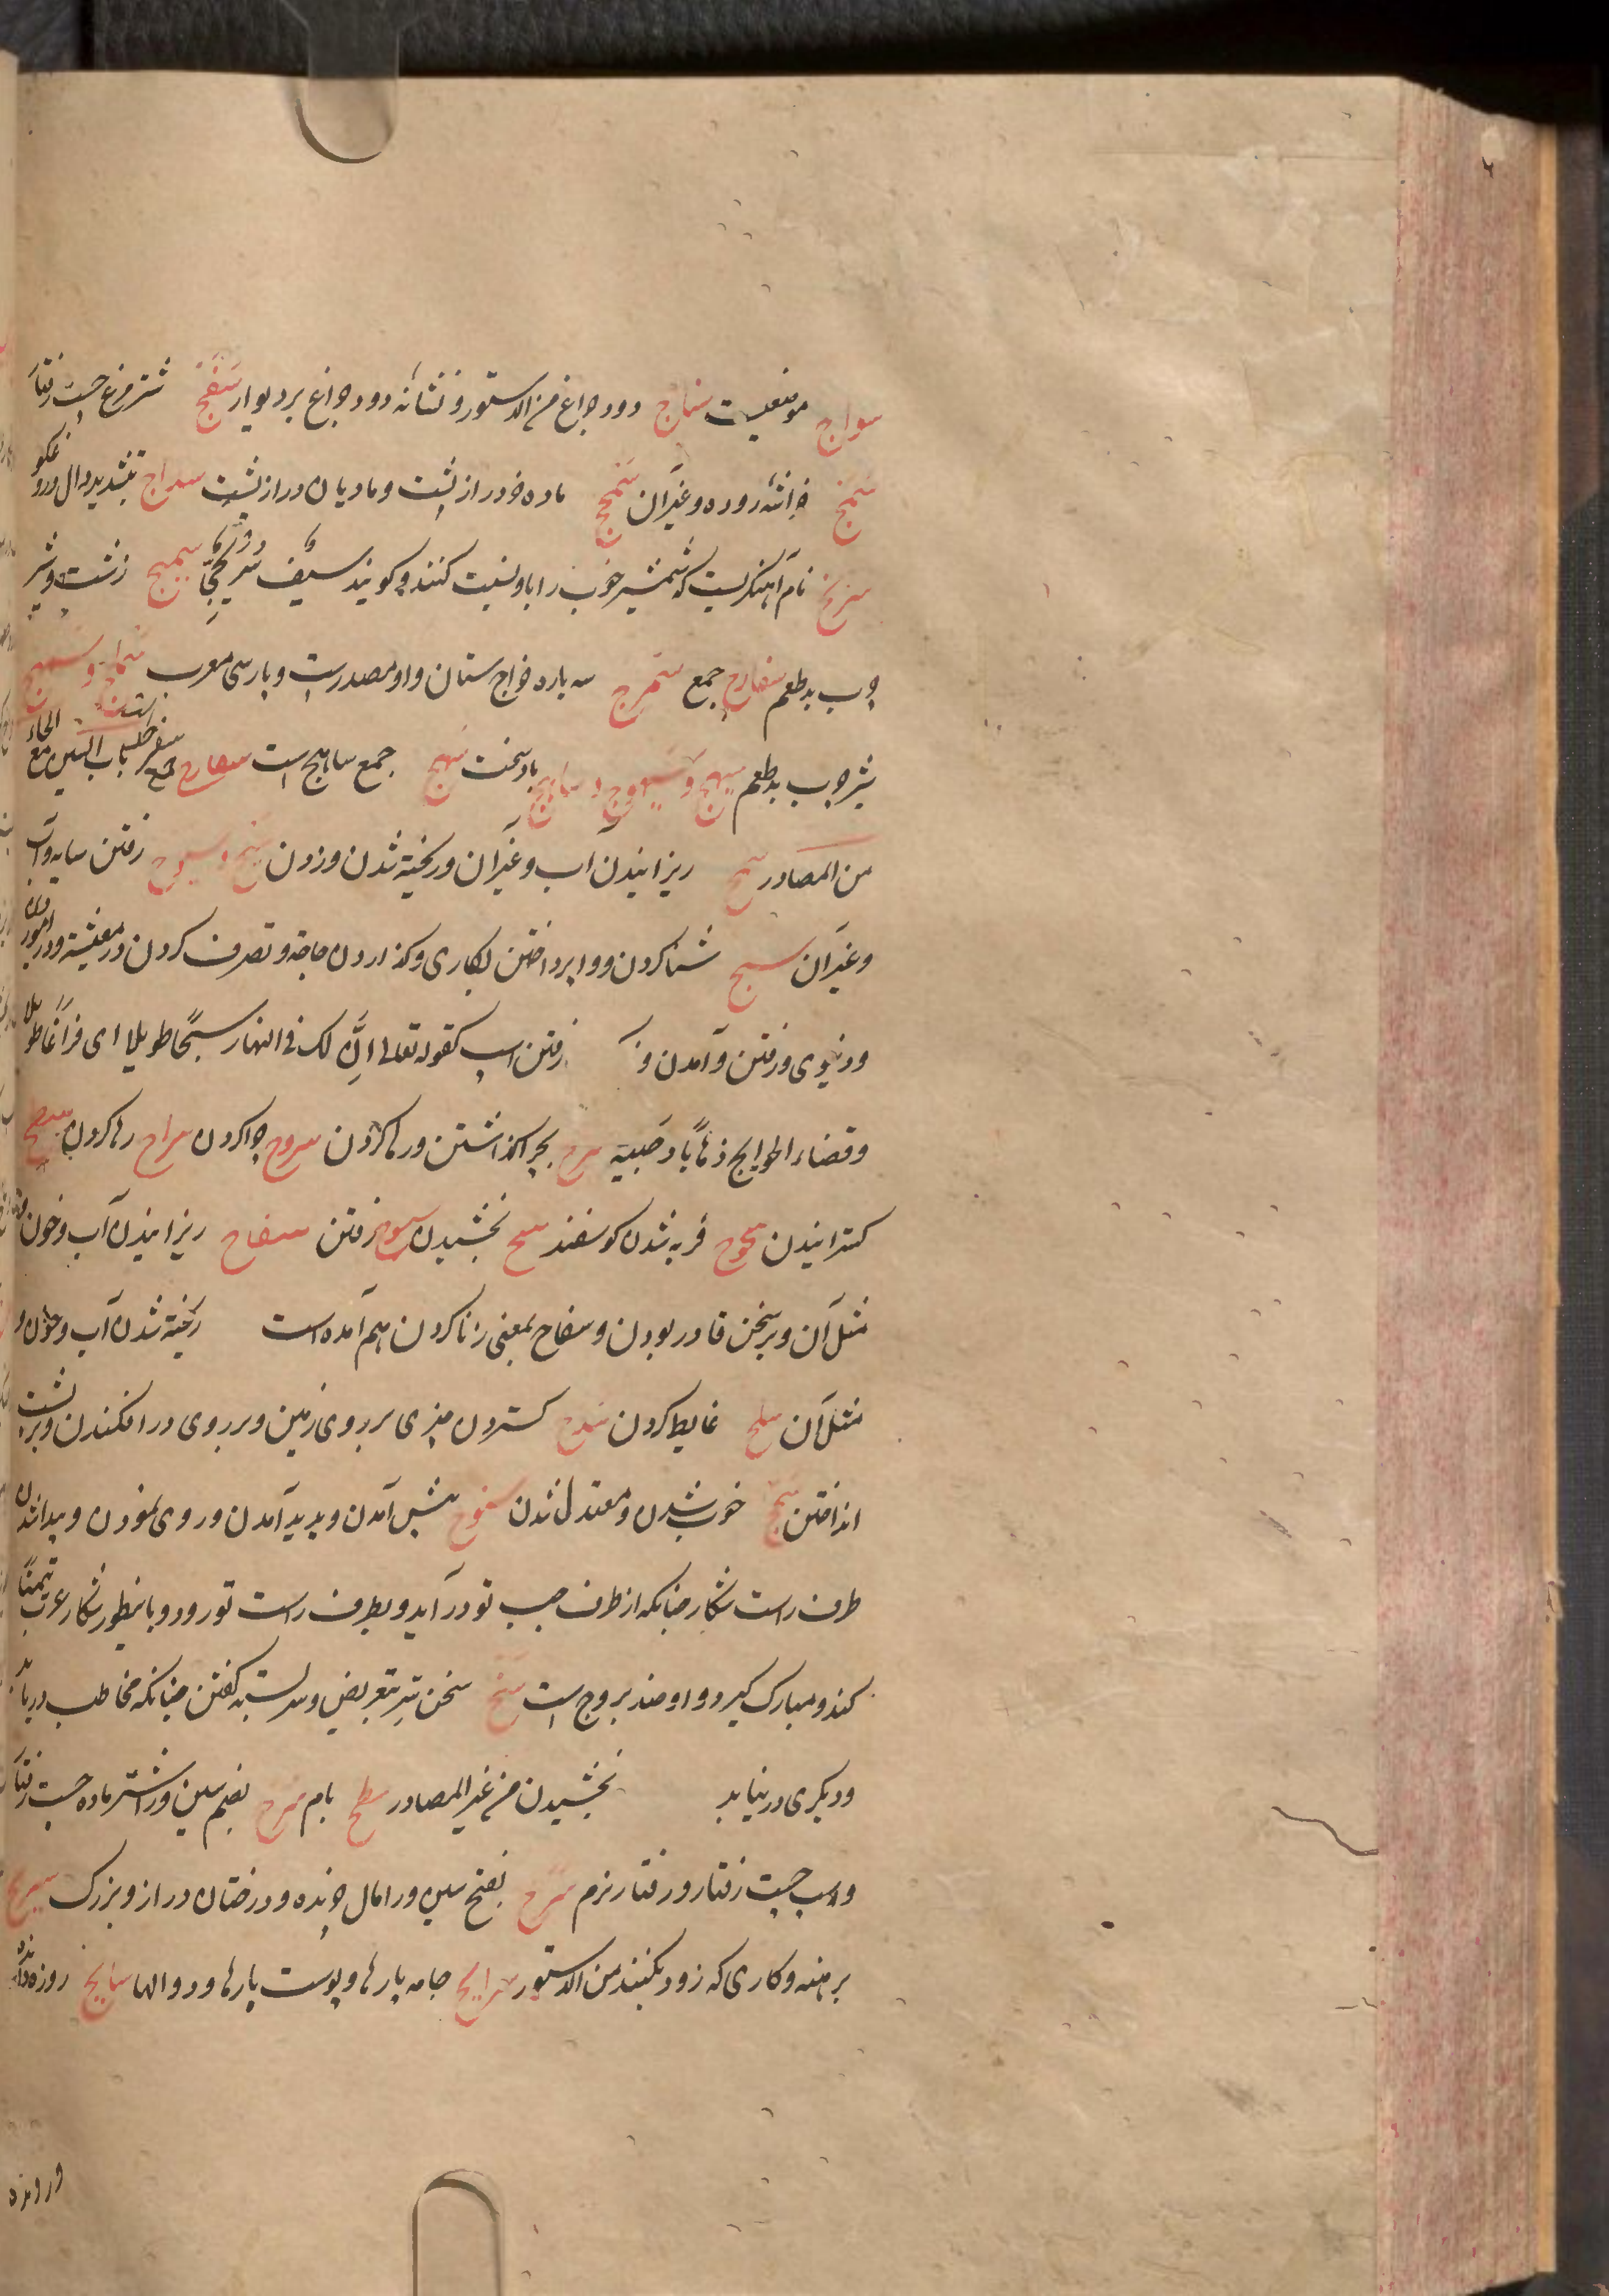 سواج موضعیست سناج دود چراغ من الدستور و نشانه دود چراغ بر دیوار سفنج شتر مرغ چست رفتار
نام آهنگریست که شمشیر خوب را باو نسبت کنند و کویند سیف سریجی سمیج زشت و شیر
چرب بد طعم سفارج جمع سمرج سه باره خراج ستان و او مصدرست و پارسی معرب سماج و سمهج
شیر چرب بد طعم سیهج و سیهوج و ساهج باد سخت سهج جمع ساهج است
من المصادر سح ریزانیدن آب و غیر آن و ریخته شدن و زدن سیح و سیوح رفتن سایه و آب
و غیر آن سبح شنا کردن و واپرداختن بکاری و گذاردن حاجة و تصرف کردن در معیشة و در امور
و دنیوی و رفتن و آمدن و رفتن اسب کقوله تعالی ان لک فی النهار سبحا طویلا ای فراغا طویلا
و قضاء الحوایج ذهابا و جیئة سرح بچرا گذاشتن و رها کردن سروح چرا کردن سراح رها کردن سطح
کسترانیدن سحوح فربه شدن کوسفند سح بخشیدن سیوح رفتن سفاح ریزانیدن آب و خون و
مثل آن و بر سخن قادر بودن و سفاح بمعنی زنا کردن هم آمده است ریخته شدن آب و خون و
مثل آن سلح غایط کردن سدح کستردن چیزی بر روی زمین و بر روی در افکندن و بر پشت
انداختن سجح خوب شدن و معتدل شدن سنوح پیش آمدن و پدید آمدن و روی نمودن و پیدا شدن
طرف راست شکار چنانکه از طرف چپ تو در آید و بطرف راست تو رود و باینطور شکار عرب تیمنا
کند و مبارک کیرد و او ضد بروح است سنح سخن تیر بتعریض و سربسته کفتن چنانکه مخاطب دریابد
و دیکری در نیابد بخشیدن من غیر المصادر سطح بام سرح بضم سین و را شتر ماده چست رفتار
و اسب چست رفتار و رفتار نرم سرح بفتح سین و را مال چرنده و درختان دراز و بزرک سریح
برهنه و کاری که زود بکنند من الدستور سرایح جامه پارها و پوست پارها و دوالها سایح روزه دارنده
و رونده